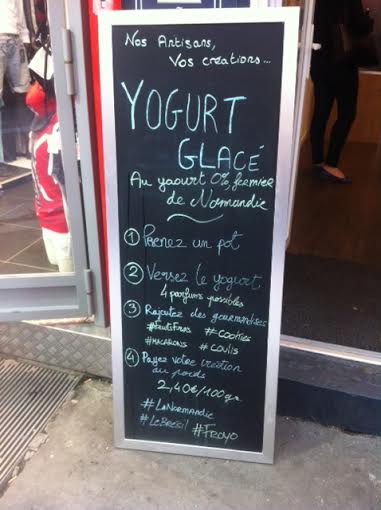 Nos Artisans,
Vos créations...
YOGURT
GLACÉ
Au yaourt 0%, fermier
de Normandie
1 Prenez un pot
2 Versez le yogurt
4 parfums possibles
3 Rajoutez des gourmandises
#FRUITSFRAIS #COOKIES
#MACARONS #COULIS
4 Payez votre création
au poids
2,40€/100gr
#LaNormandie
#LeBrésil #Froyo